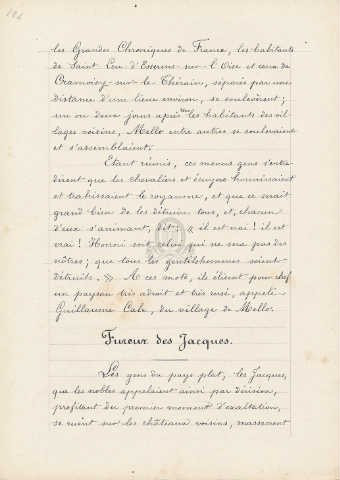 les Grandes Chroniques de France, les habitants
de Saint Leu d'Esserens-sur-l'Oise et ceux de
Cramoisy-sur-le Thérain, séparés par une
distance d'une lieue environ, se soulevèrent;
un ou deux jours après les habitants des vil-
lages voisins, Mello entre autres se soulevaient
et s'assemblaient.
Etant réunis, ces menus gens s'entre-
dirent que les chevaliers et écuyers honnissaient
et trahissaient le royaume, et que ce serait
grand bien de les détruire tous, et, chacun
d'eux s'animant, dit: « il est vrai! il est
vrai! Honni soit celui qui ne sera pas des
nôtres; que tous les gentilshommes soient
détruits. » A ces mots, ils élirent pour chef
un paysan très adroit et très rusé, appelé
Guillaume Cale, du village de Mello.
Fureur des Jacques.
Les gens du pays plat, les Jacques,
que les nobles appelaient ainsi par dérision,
profitant du premier moment d'exaltation,
se ruent sur les châteaux voisins, massacrent